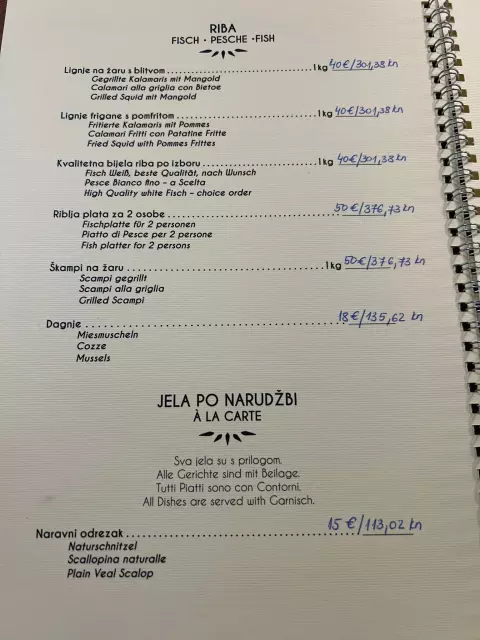 RIBA
FISCH • PESCHE • FISH
Lignje na žaru s blitvom ........................ 1 kg 40€/301,38 kn
Gegrillte Kalamaris mit Mangold
Calamari alla griglia con Bietoe
Grilled Squid with Mangold
Lignje frigane s pomfritom ........................ 1 kg 40€/301.38 kn
Fritierte Kalamaris mit Pommes
Calamari Fritti con Patatine Fritte
Fried Squid with Pommes Frittes
Kvalitetna bijela riba po izboru ........................ 1 kg 40€/301.38 kn
Fisch Weiß, beste Qualität, nach Wunsch
Pesce Bianco fino - a Scelta
High Quality white Fisch - choice order
Riblja plata za 2 osobe ........................ 50€/376,73 kn
Fischplatte für 2 personen
Piatto di Pesce per 2 persone
Fish platter for 2 persons
Škampi na žaru ........................ 1 kg 50€/376,73 kn
Scampi gegrillt
Scampi alla griglia
Grilled Scampi
Dagnje ........................ 18€/135,62 kn
Miesmuscheln
Cozze
Mussels
JELA PO NARUDŽBI
À LA CARTE
Sva jela su s prilogom.
Alle Gerichte sind mit Beilage.
Tutti Piatti sono con Contorni.
All Dishes are served with Garnisch.
Naravni odrezak ........................ 15 €/113,02 kn
Naturschnitzel
Scallopina naturalle
Plain Veal Scalop